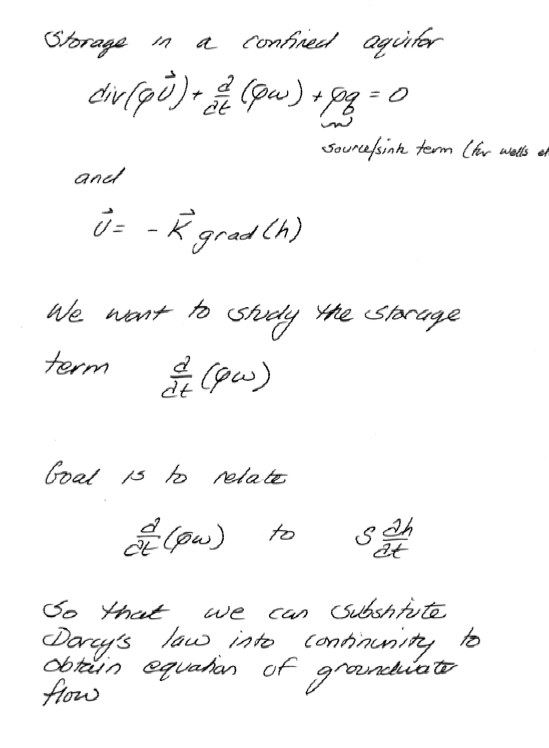 Storage in a confined aquifer
div(ρU⃗) + ∂/∂t (ρω) + ρq = 0
source/sink term (for wells et
and
U⃗ = - K⃗ grad(h)
We want to study the storage
term ∂/∂t (ρω)
Goal is to relate
∂/∂t (ρω) to S ∂h/∂t
So that we can substitute
Darcy's law into continuity to
obtain equation of groundwater
flow